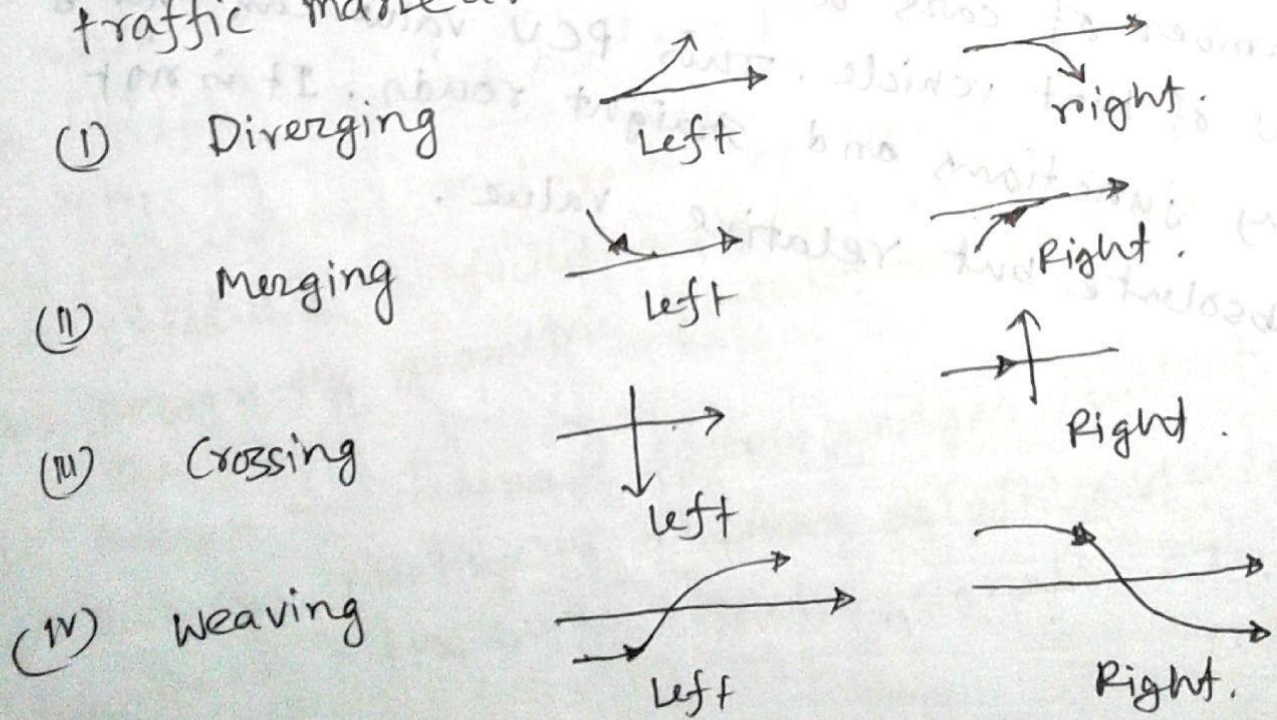 traffic
(I) Diverging Left right.
(II) Merging Left Right.
(III) Crossing Left Right.
(IV) Weaving Left Right.